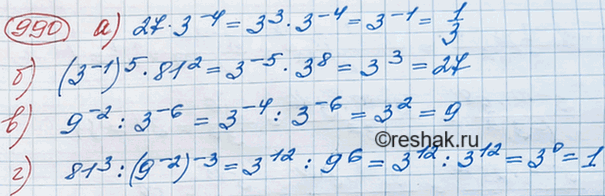 990 а) 27 · 3⁻⁴ = 3³ · 3⁻⁴ = 3⁻¹ = 1/3
б) (3⁻¹)⁵ · 81² = 3⁻⁵ · 3⁸ = 3³ = 27
в) 9⁻² : 3⁻⁶ = 3⁻⁴ : 3⁻⁶ = 3² = 9
©reshak.ru
г) 81³ : (9⁻²)⁻³ = 3¹² : 9⁶ = 3¹² : 3¹² = 3⁰ = 1